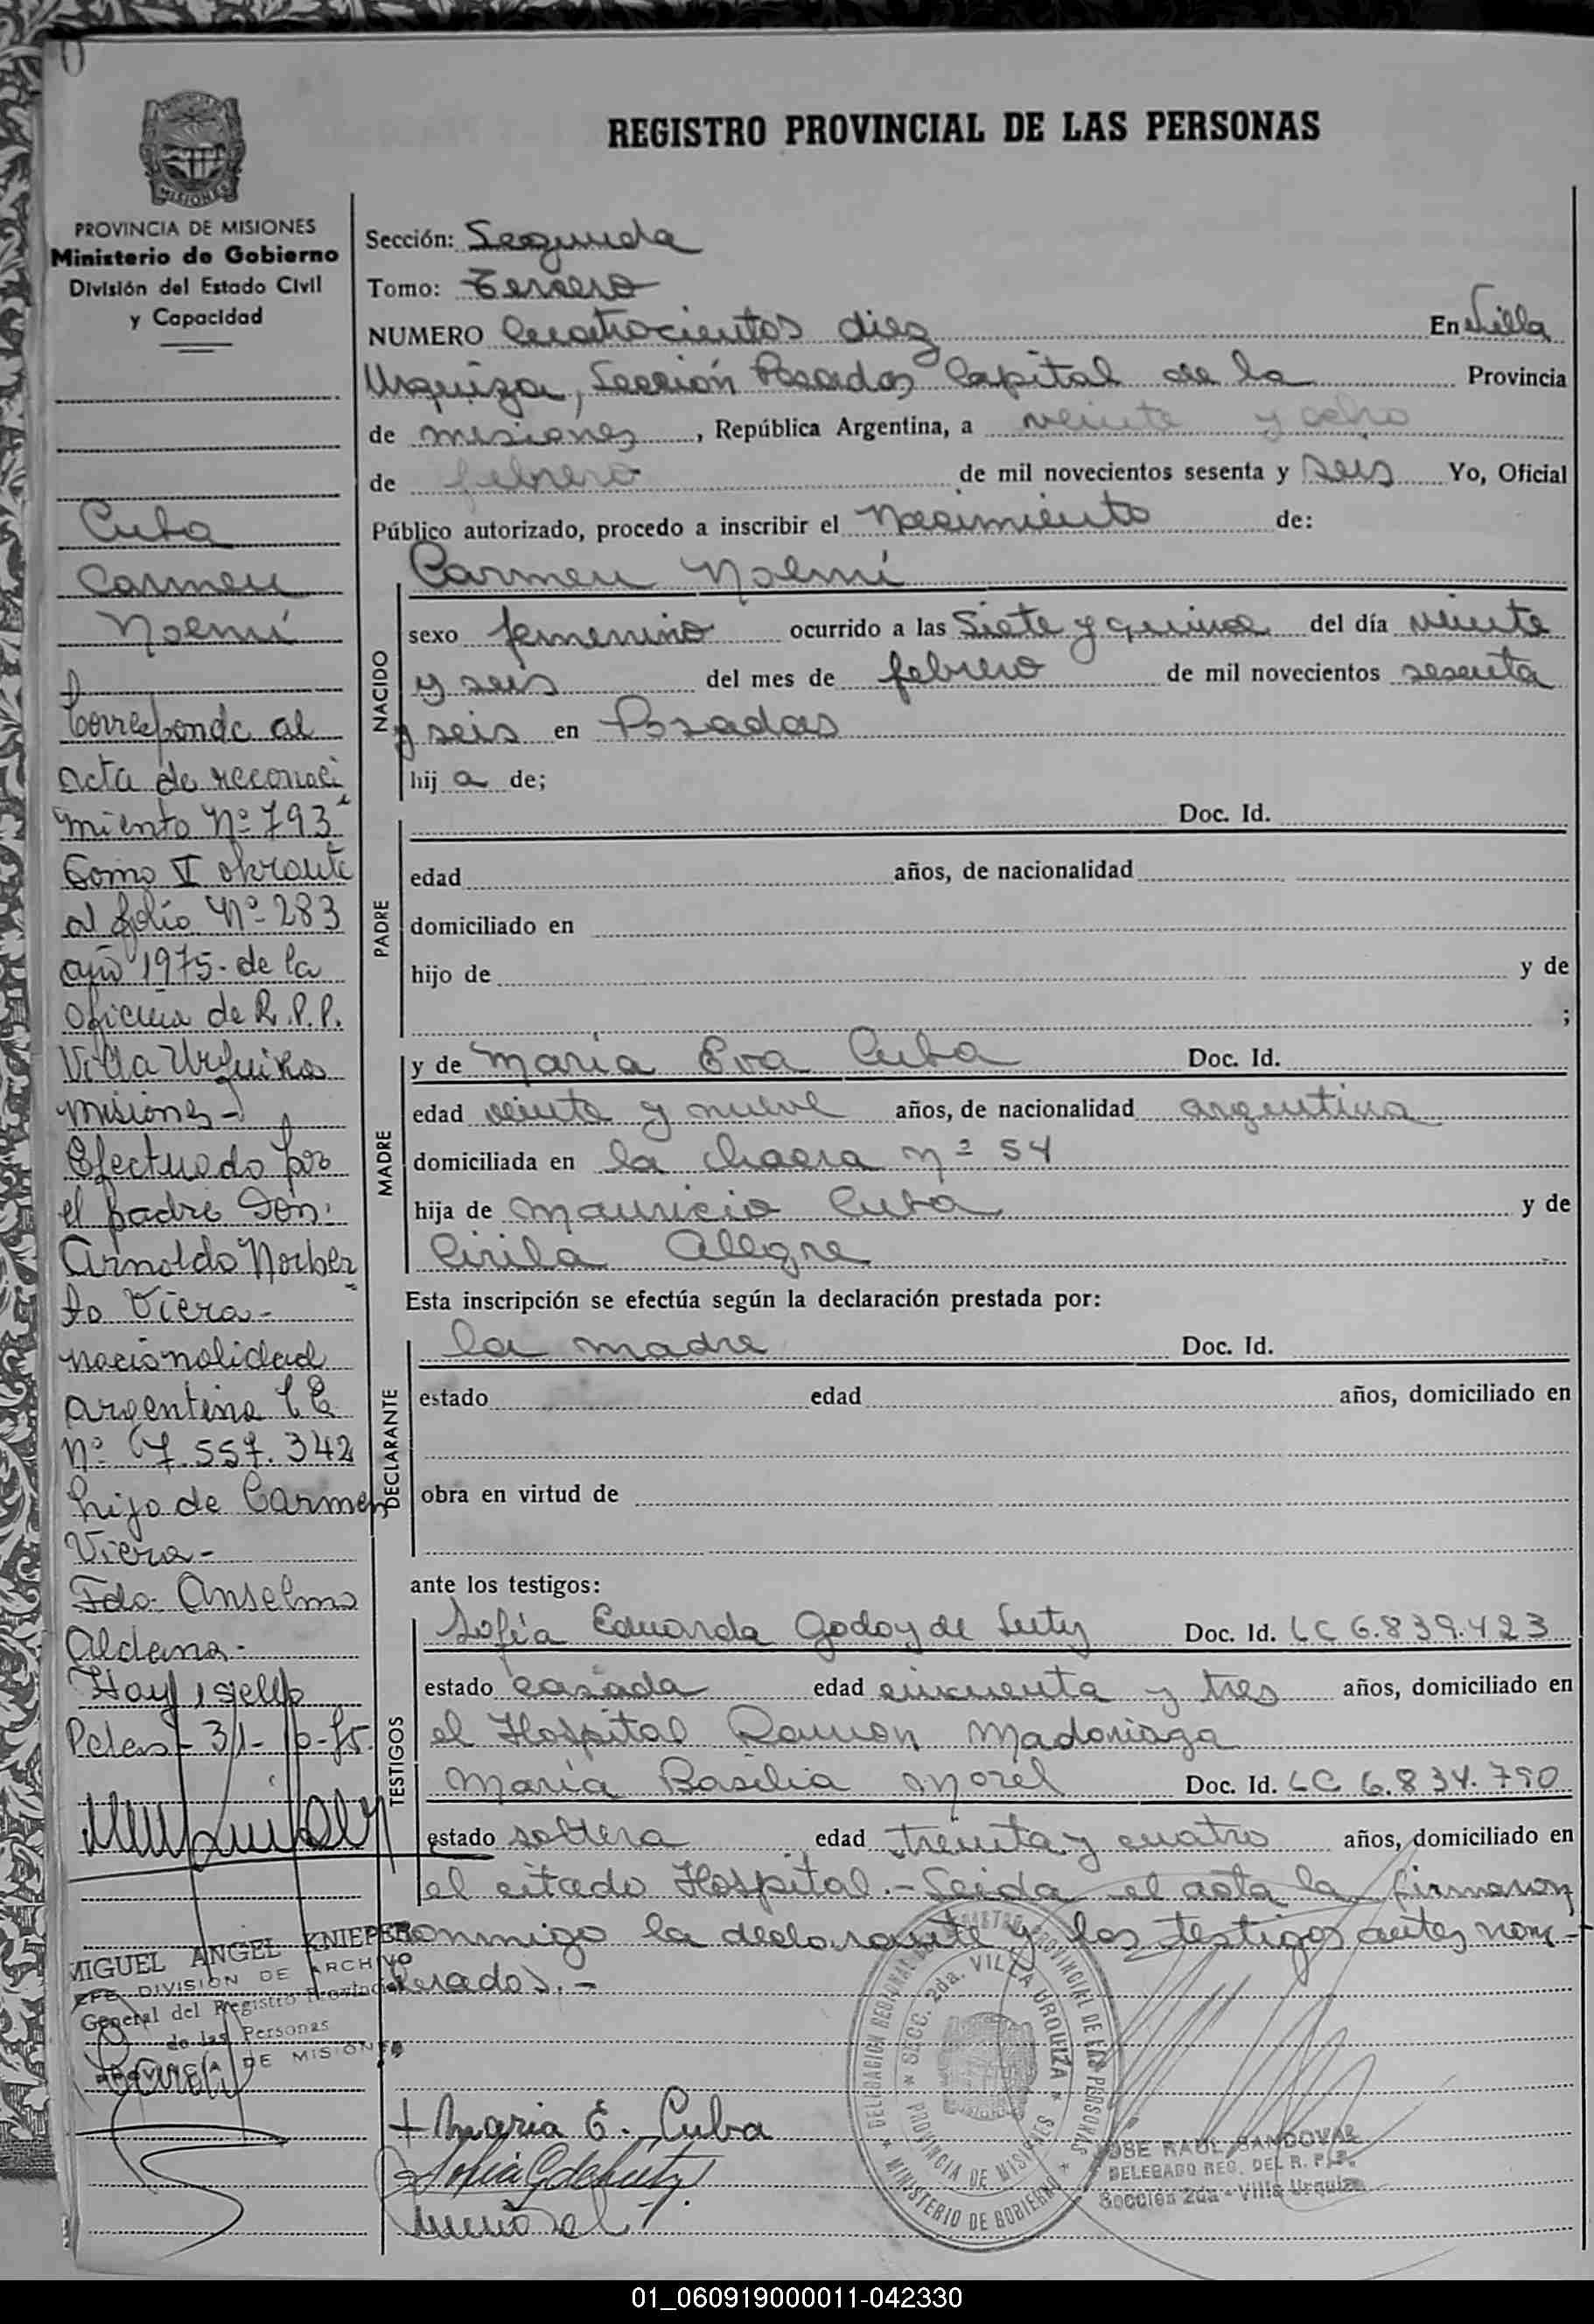 REGISTRO PROVINCIAL DE LAS PERSONAS
MISIONES
PROVINCIA DE MISIONES
Ministerio de Gobierno
División del Estado Civil
y Capacidad
Cuba
Carmen
Noemí
Corresponde al
acta de reconoci
miento Nº 793
Tomo II obrante
al folio Nº 283
año 1975- de la
Oficina de R.P.P.
Villa Urquiza
Misiones-
Efectuado por
el padre Don:
Arnoldo Norber
to Viera-
nacionalidad
argentina
Nº 7.557.342
hijo de Carmen
Viera-
Fdo. Anselmo
Hay 1 sello
31-10-75.
MIGUEL ANGEL KNIEPER
JEFE DIVISION DE ARCHIVO
General del Registro Provincial
de las Personas
PROVINCIA DE MISIONES
Sección: Segunda
Tomo: Tercero
NUMERO Cuatrocientos diez En Villa
Urquiza, Sección Posadas Capital de la Provincia
de misiones, República Argentina, a veinte y ocho
de febrero de mil novecientos sesenta y seis Yo, Oficial
Público autorizado, procedo a inscribir el Nacimiento de:
NACIDO
Carmen Noemí
sexo femenino ocurrido a las Siete y quince del día veinte
y seis del mes de febrero de mil novecientos sesenta
y seis en Posadas
hij a de;
PADRE
Doc. Id.
edad años, de nacionalidad
domiciliado en
hijo de y de
;
MADRE
y de María Eva Cuba Doc. Id.
edad veinte y nueve años, de nacionalidad argentina
domiciliada en la chacra nº 54
hija de Mauricio Cuba y de
Cirila Alegre
Esta inscripción se efectúa según la declaración prestada por:
DECLARANTE
la madre Doc. Id.
estado edad años, domiciliado en
obra en virtud de
ante los testigos:
TESTIGOS
Sofía Eduarda Godoy de Doc. Id. LC 6.839.423
estado casada edad cincuenta y tres años, domiciliado en
el Hospital Ramon Madariaga
María Basilia Morel Doc. Id. LC 6.834.790
estado soltera edad treinta y cuatro años, domiciliado en
el citado Hospital.- Leida el acta la firmaron
conmigo la declarante y los testigos antes nom-
brados.-
+ Maria E. Cuba
DELEGACION REGIONAL REGISTRO PROVINCIAL DE LAS PERSONAS
SECC. 2da. VILLA URQUIZA
PROVINCIA DE MISIONES
MINISTERIO DE GOBIERNO
JOSE RAUL SANDOVAL
DELEGADO REG. DEL R. P. P.
Sección 2da - Villa Urquiza
01_060919000011-042330